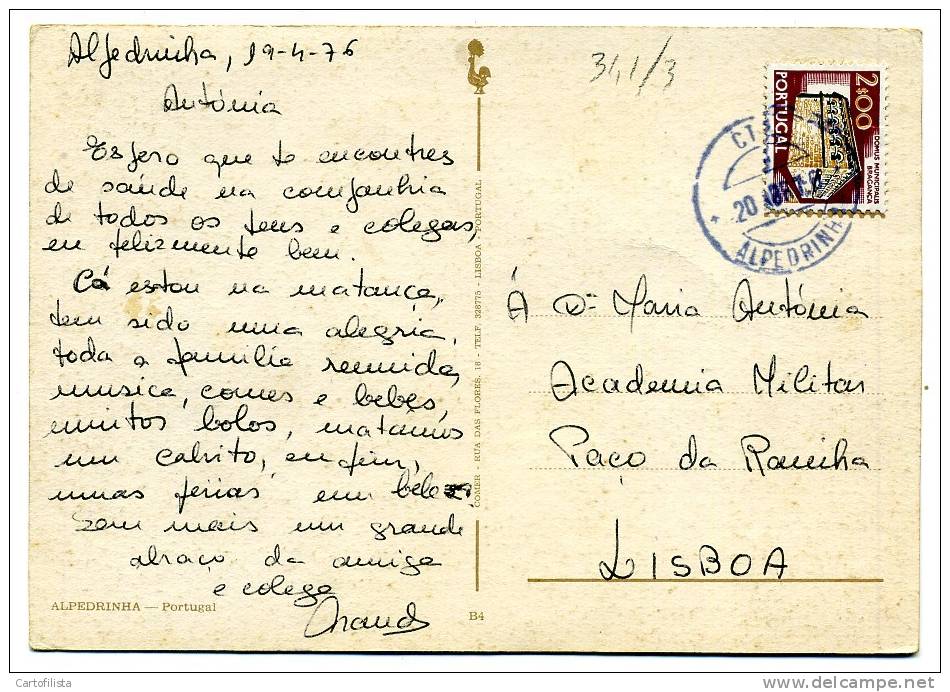 Alpedrinha, 19-4-76
Antónia
Espero que te encontres
de saúde na companhia
de todos os teus e colegas,
eu felizmente bem.
Cá estou na matança,
tem sido uma alegria,
toda a família reunida,
musica, comes e bebes,
muitos bolos, matámos
um cabrito, enfim,
umas férias em
Sem mais um grande
abraço da amiga
e colega
ALPEDRINHA — Portugal
B4
COMER - RUA DAS FLORES, 18 - TELF. 328775 - LISBOA - PORTUGAL
341/3
PORTUGAL
2$00
DOMUS MUNICIPALIS
BRAGANÇA
ALPEDRINHA
À D. Maria Antónia
Academia Militar
Paço da Rainha
LISBOA
Cartofilista
www.delcampe.net